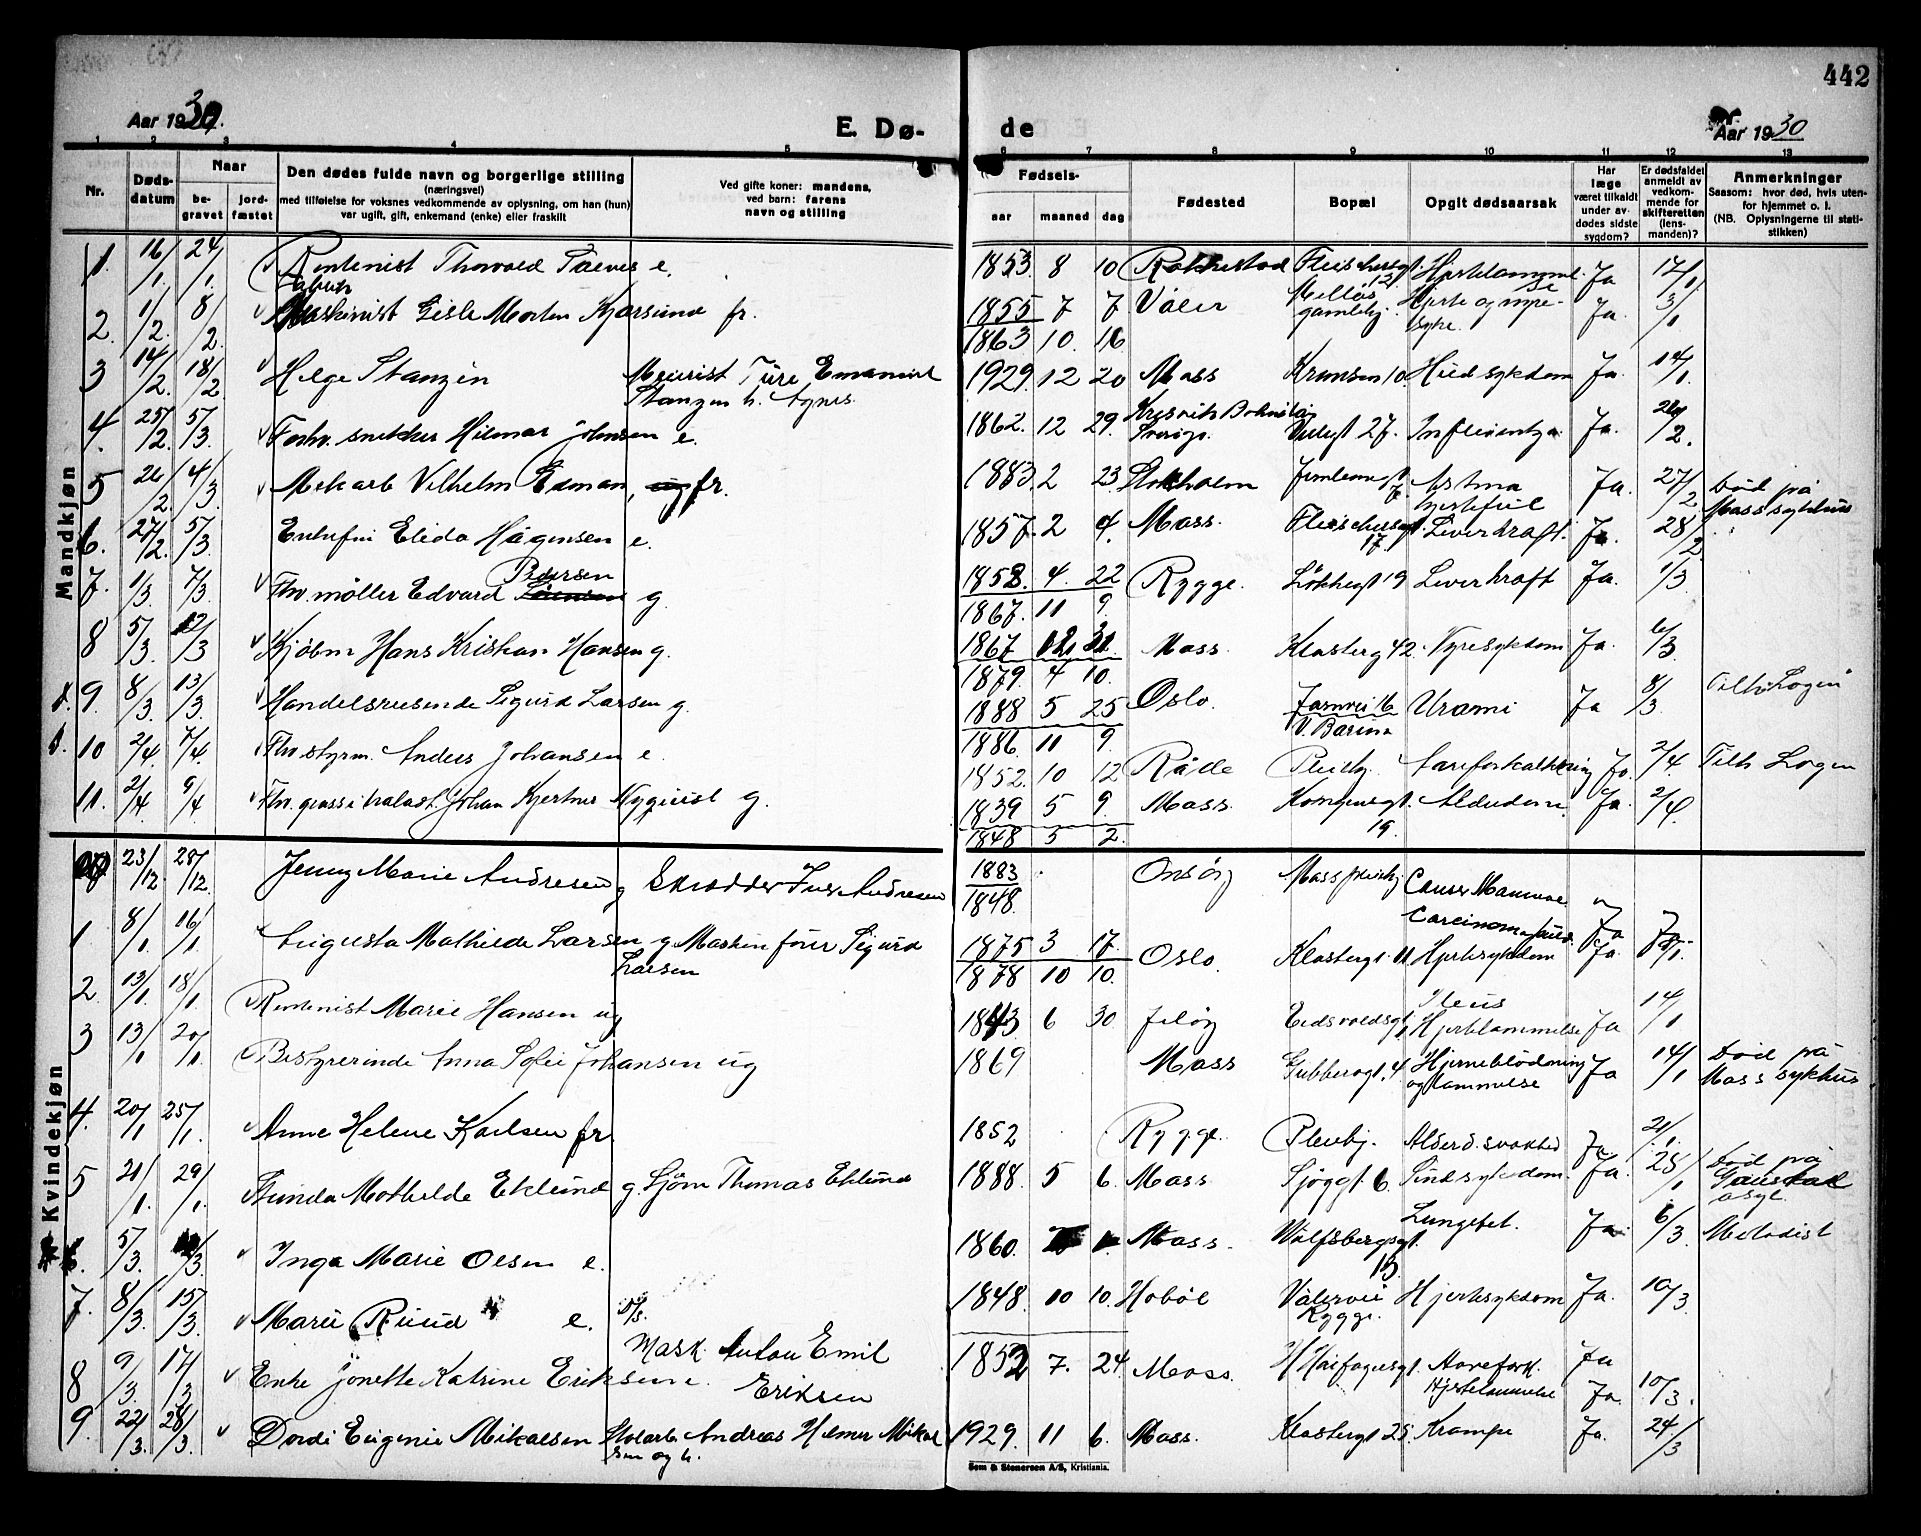 442
Aar 1930.
E. Dø-
de
Aar 1930
1 2 3 4 5
6 7 8 9 10 11 12 13
Nr.
Døds-
datum
Naar
be-
gravet
jord-
fæstet
Den dødes fulde navn og borgerlige stilling
(næringsvei)
med tilføielse for voksnes vedkommende av oplysning, om han (hun)
var ugift, gift, enkemand (enke) eller fraskilt
Ved gifte koner: mandens,
ved barn: farens
navn og stilling
Fødsels-
aar maaned dag
Fødested
Bopæl
Opgit dødsaarsak
Har
læge
været tilkaldt
under av-
dødes sidste
sygdom?
Er dødsfaldet
anmeldt av
vedkom-
mende for
skifteretten
(lens-
manden)?
Anmerkninger
Saasom: hvor død, hvis uten-
for hjemmet o. l.
(NB. Oplysningerne til stati-
stikken)
Mandkjøn
1. 16/1. 24/1. Rentenist Thorvald e. 1853 8 10 Rakkestad Fleischersgt. 12 Hjertelammelse Ja 17/1
2. 1/2. 8/2. Maskinist Gisle Morten Kjærsund fr. 1855 7 7 Våler gamlehj. Hjerte og nyre-
syke. Ja. 3/1
1863 10. 16
3 14/2. 18/2 Helge Stanzen Meierist Ture Emanuel
Stanzen h. Agnes. 1929. 12 20 Moss 10. Ja. 14/1.
4. 25/2. 5/3. Forhv. snekker Hilmar Johnsen e. 1862. 12 29. Sverige. 27. Influentza Ja. 26/2.
5 26/2. 4/3. Mek arb Vilhelm Edman, ug fr. 1883. 2 23 Stokholm Astma
hjertefeil Ja. 27/2 Død på
Moss sykehus
6. 27/2. 5/3. Elida Hågensen e. 1857. 2 4. Moss. Fleischersgt.
17. Leverkræft. Ja. 28/2
7. 1/3. 7/3. Fhv. møller Edvard Sørensen Pedersen g. 1858. 4. 22 Rygge. Løkkegt 19 Leverkræft Ja. 1/3
1867. 11 9.
8 5/3. 12/3 Kjøbm Hans Kristian Hansen g. 1867 12. 31 Moss. Klosterg 42. Nyresykdom Ja. 6/3.
1879. 4 10.
9. 8/3. 13/3. Handelsreisende Sigurd Larsen g. 1888 5 25 Oslo. Jarnvei 16
V. Barina Urämi Ja 8/3. Tilh. Logen
1886. 11 9.
10 2/4. 7/4. Fhv. styrm. Anders Johansen e. 1852. 10 12 Råde Pleiehj. Åreforkalkning Ja. 2/4. Tilh. Logen
11. 2/4 9/4 Fhv. Johan Kjerkner Nyquist g. 1839 5 9. Moss. Kongensgt.
19. Alderdom. Ja. 2/4
1848 5 2.
Kvindekjøn
23/12. 28/12. Jenny Marie Andresen g Skrædder Andresen 1883 Onsøy Moss pleiehj Cancer Mammae
Carcinom Ja
1848.
1 8/1. 16/1. Augusta Mathilde Larsen g. Maskinfører Sigurd
Larsen 1875 3 17. Oslo. Klostergt. 11 Hjertesykdom Ja.
1878 10 10.
2 13/1. 18/1. Rentenist Marie Hansen ug 1843 6 30 Jeløy Eidsvoldsgt. 1 Ileus
Hjertelammelse Ja 14/1
3 13/1 20/1. Bestyrerinde Anna Sofie Johansen ug 1869 Moss Gubberogt. 4 Hjerneblødning
og lammelse Ja 14/1 Død på
Moss sykhus
4. 20/1 25/1. Anne Helene Karlsen fr 1852 Rygge. Pleiehj. Alderd. svakhed Ja 21/1.
5 21/1. 29/1. Mathilde Eklund g. Sjöm Thomas Eklund 1888. 5 6. Moss Sjøggt. 6. Sindsykdom. Ja. 28/1 Død på
Gaustad
asyl.
6. 5/3. /3. Inga Marie Olsen e. 1860. Moss. Wulfsbergsgt.
13. Lungebet. Ja. 6/3. Metodist
7. 8/3. 15/3. Marie Ruud e. 1848. 10 10. Hobøl Vålervei
Rygge. Hjertesykdom Ja. 10/3.
8 9/3. 14/3 Enke Jonette Katrine Eriksen. Mask. Anton Emil
Eriksen 1852 7. 24 Moss. Aarefork.
Hjertelammelse Ja
Ja. 10/3.
9. 22/3. 28/3. Dordi Eugenie Mikalsen Stolarb Andreas Hilmer Mikal
sen og h. 1929. 11 6. Moss. Klostergt 25. Krampe Ja. 24/3
Sem & Stenersen A/S, Kristiania.